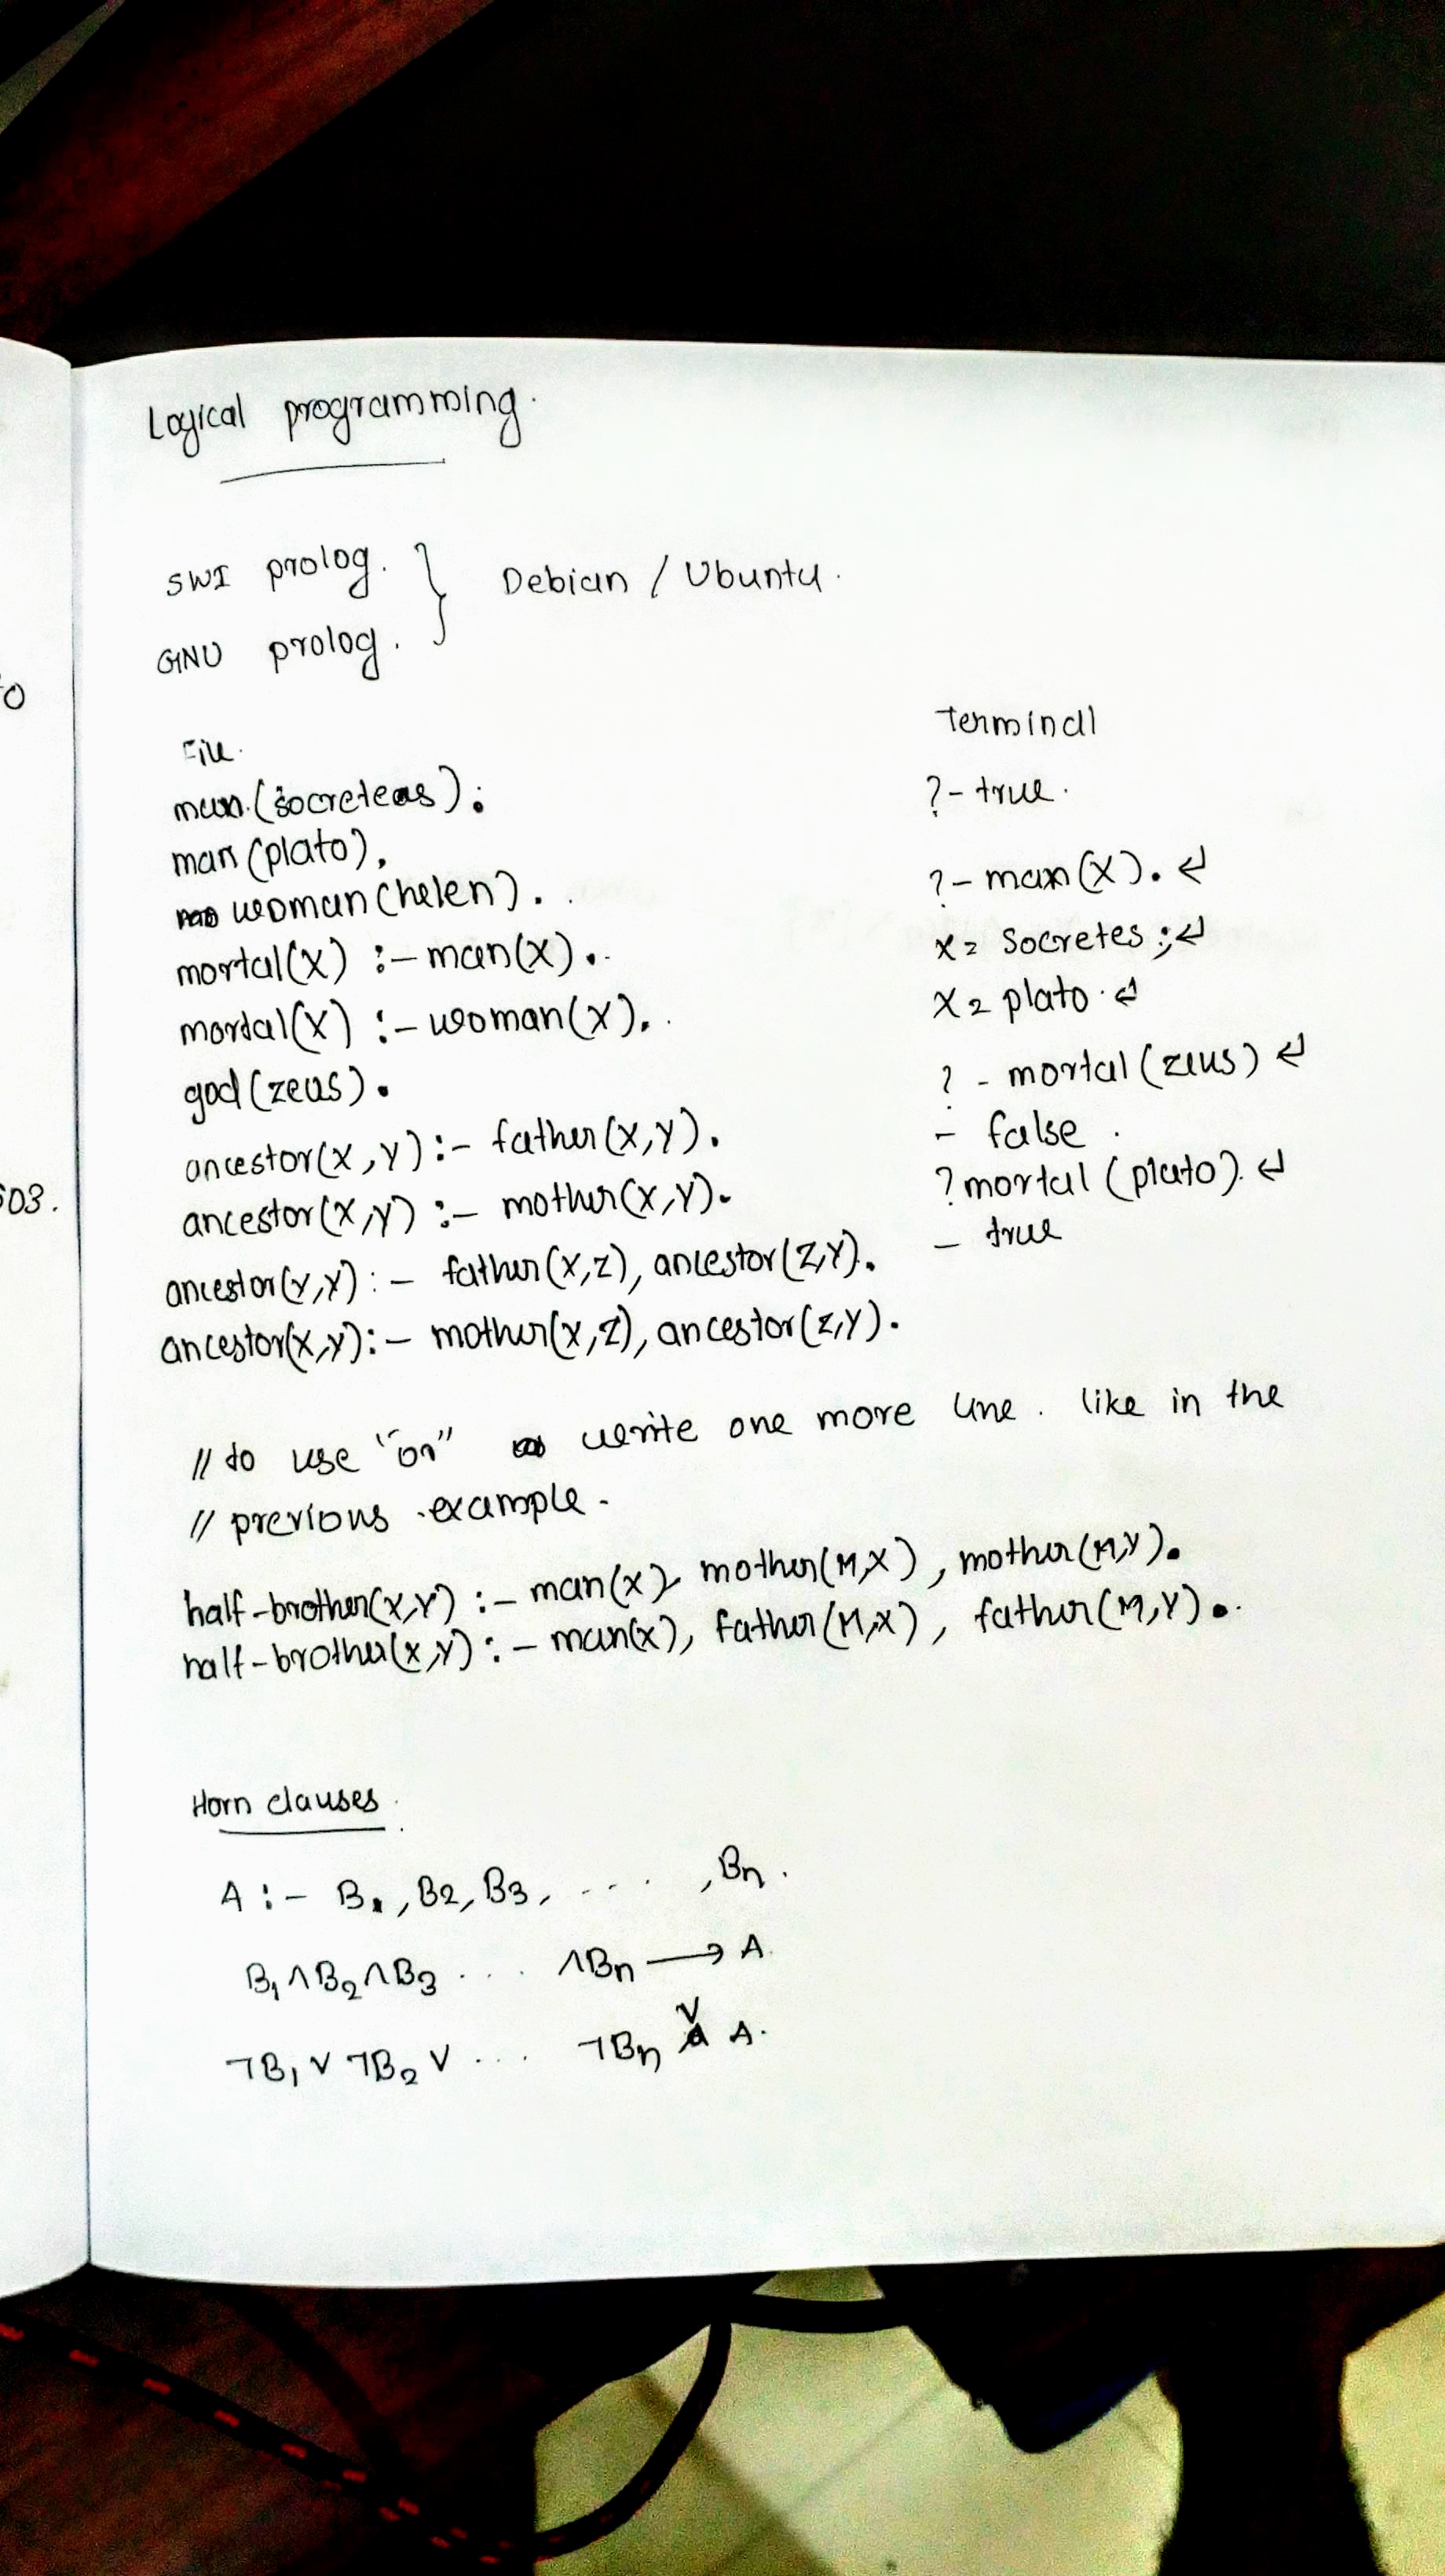 Logical programming.
SWI prolog. } Debian / Ubuntu.
GNU prolog.
File.
man.(socreteas).
man(plato).
woman(helen).
mortal(X) :- man(X).
mortal(X) :- woman(X).
god(zeus).
ancestor(X,Y) :- father(X,Y).
ancestor(X,Y) :- mother(X,Y).
ancestor(X,Y) :- father(X,Z), ancestor(Z,Y).
ancestor(X,Y) :- mother(X,Z), ancestor(Z,Y).
Terminal
?- true.
?- man(X). ↵
X = Socretes ;↵
X = plato . ↵
? - mortal (zeus) ↵
- false .
? mortal (plato). ↵
- true
// to use "or" write one more line. like in the
// previous example.
half-brother(X,Y) :- man(X), mother(M,X), mother(M,Y).
half-brother(X,Y) :- man(X), father(M,X), father(M,Y).
Horn clauses.
A :- B1, B2, B3, .... , Bn.
B1 ∧ B2 ∧ B3 .... ∧ Bn → A.
¬B1 ∨ ¬B2 ∨ .... ¬Bn ∨ A.
03.